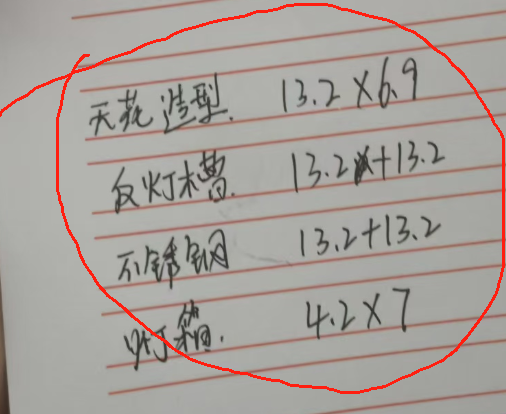 天花造型. 13.2×6.9
反灯槽. 13.2+13.2
不锈钢 13.2+13.2
灯箱. 4.2×7